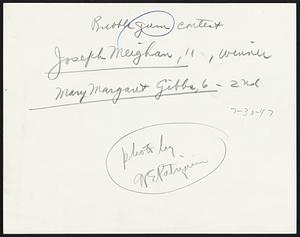 Bubble gum contest
Joseph Meighan, 11, winner
Mary Margaret Gibbs, 6 - 2nd
7-31-47
photo by